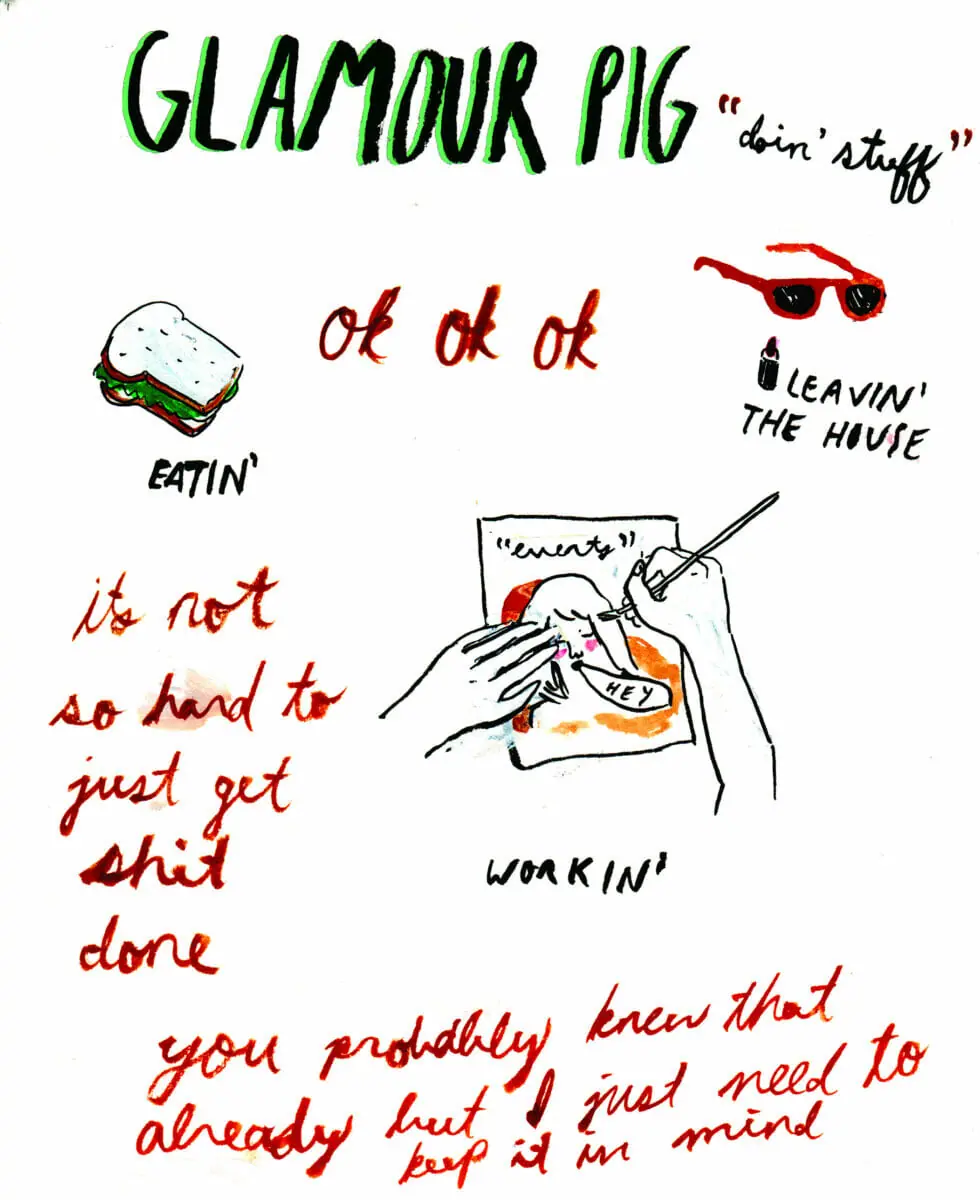 GLAMOUR PIG "doin' stuff"
ok ok ok
EATIN'
LEAVIN'
THE HOUSE
"events"
HEY
WORKIN'
its not
so hard to
just get
shit
done
you probably knew that
already but I just need to
keep it in mind